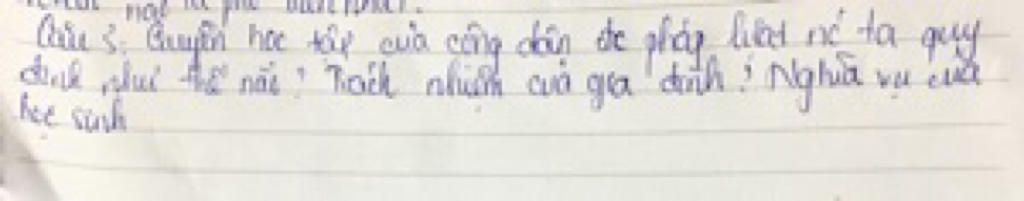 nào là phổ biến nhất?
Câu 3. Quyền học tập của công dân đc pháp luật nc ta quy
định như thế nào? Trách nhiệm của gia đình? Nghĩa vụ của
học sinh